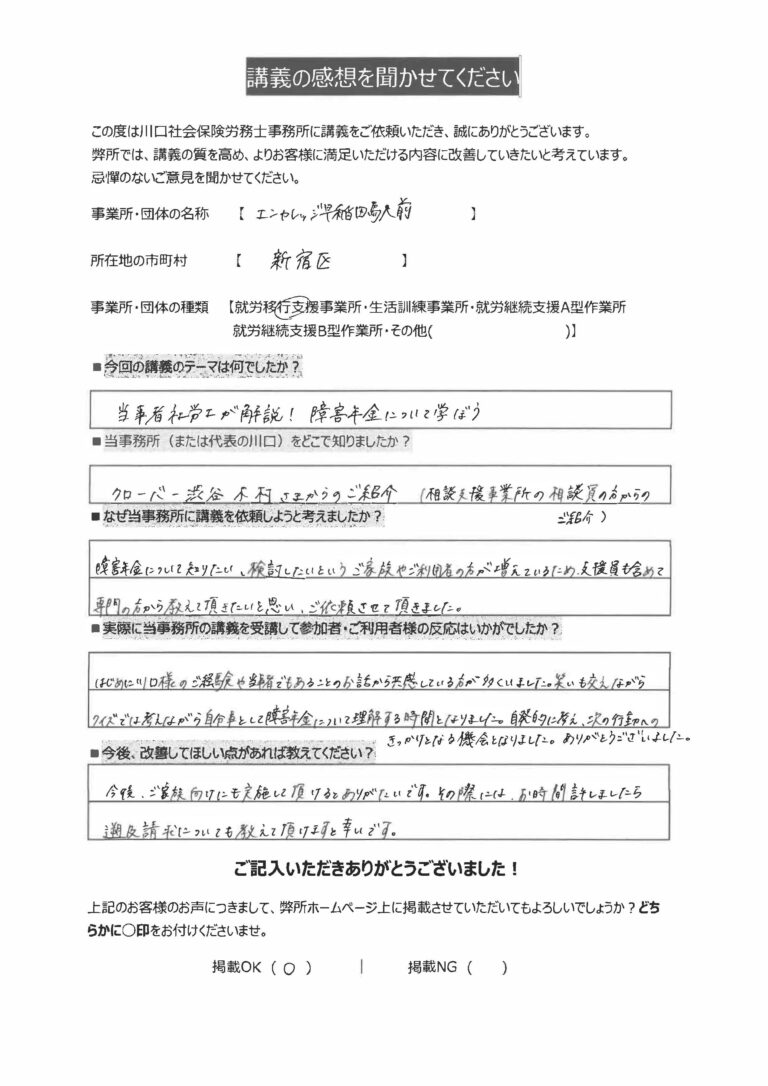 講義の感想を聞かせてください
この度は川口社会保険労務士事務所に講義をご依頼いただき、誠にありがとうございます。
弊所では、講義の質を高め、よりお客様に満足いただける内容に改善していきたいと考えています。
忌憚のないご意見を聞かせてください。
事業所・団体の名称 【 エンカレッジ早稲田駅前 】
所在地の市町村 【 新宿区 】
事業所・団体の種類 【就労移行支援事業所・生活訓練事業所・就労継続支援A型作業所
就労継続支援B型作業所・その他( )】
■今回の講義のテーマは何でしたか？
当事者社労士が解説！ 障害年金について学ぼう
■当事務所（または代表の川口）をどこで知りましたか？
クローバー渋谷 木村さまからのご紹介 （相談支援事業所の相談員の方からの
ご紹介）
■なぜ当事務所に講義を依頼しようと考えましたか？
障害年金について知りたい、検討したいというご家族やご利用者の方が増えているため、支援員も含めて
専門の方から教えて頂きたいと思い、ご依頼させて頂きました。
■実際に当事務所の講義を受講して参加者・ご利用者様の反応はいかがでしたか？
はじめに川口様のご経験や当事者でもあることのお話から共感している方が多くいました。笑いも交えながら
クイズでは考えながら自分事として障害年金について理解する時間となりました。自発的に考え、次の行動への
きっかけとなる機会となりました。ありがとうございました。
■今後、改善してほしい点があれば教えてください？
今後、ご家族向けにも実施して頂けるとありがたいです。その際には、お時間許しましたら
遡及請求についても教えて頂けますと幸いです。
ご記入いただきありがとうございました！
上記のお客様のお声につきまして、弊所ホームページ上に掲載させていただいてもよろしいでしょうか？どち
らかに○印をお付けくださいませ。
掲載OK（ ○ ） | 掲載NG （ ）